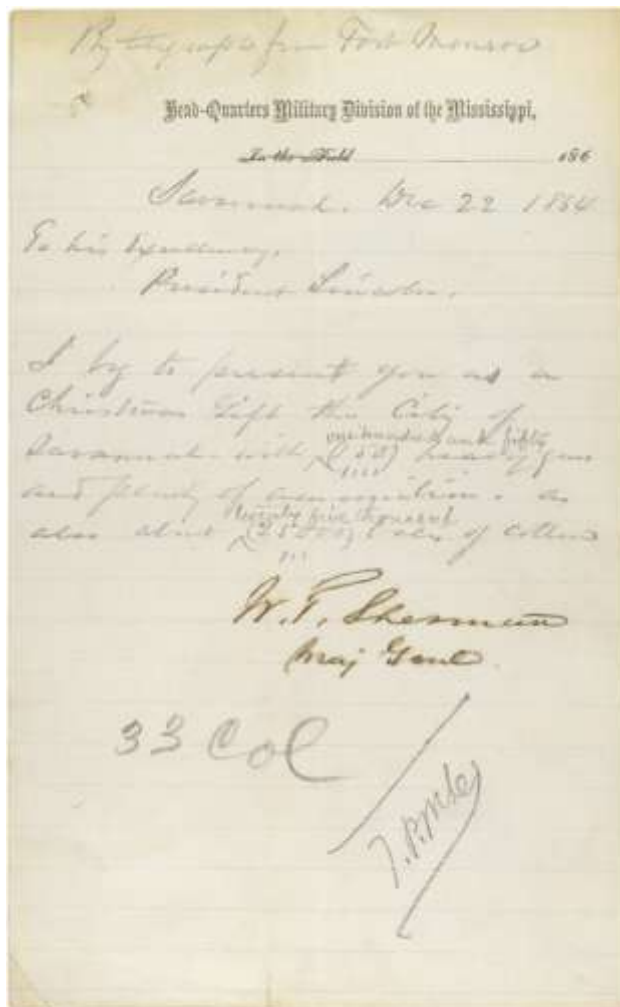 By telegraph from Fort Monroe
Head-Quarters Military Division of the Mississippi,
In the Field 186
Savannah. Dec 22 1864
To his Excellency,
President Lincoln.
I beg to present you as a
Christmas Gift the City of
one hundred and fifty
Savannah with (150) heavy guns
and plenty of ammunition. as
twenty five thousand
also about (25000) bales of cotton
W. T. Sherman
Maj Genl.
33 Col